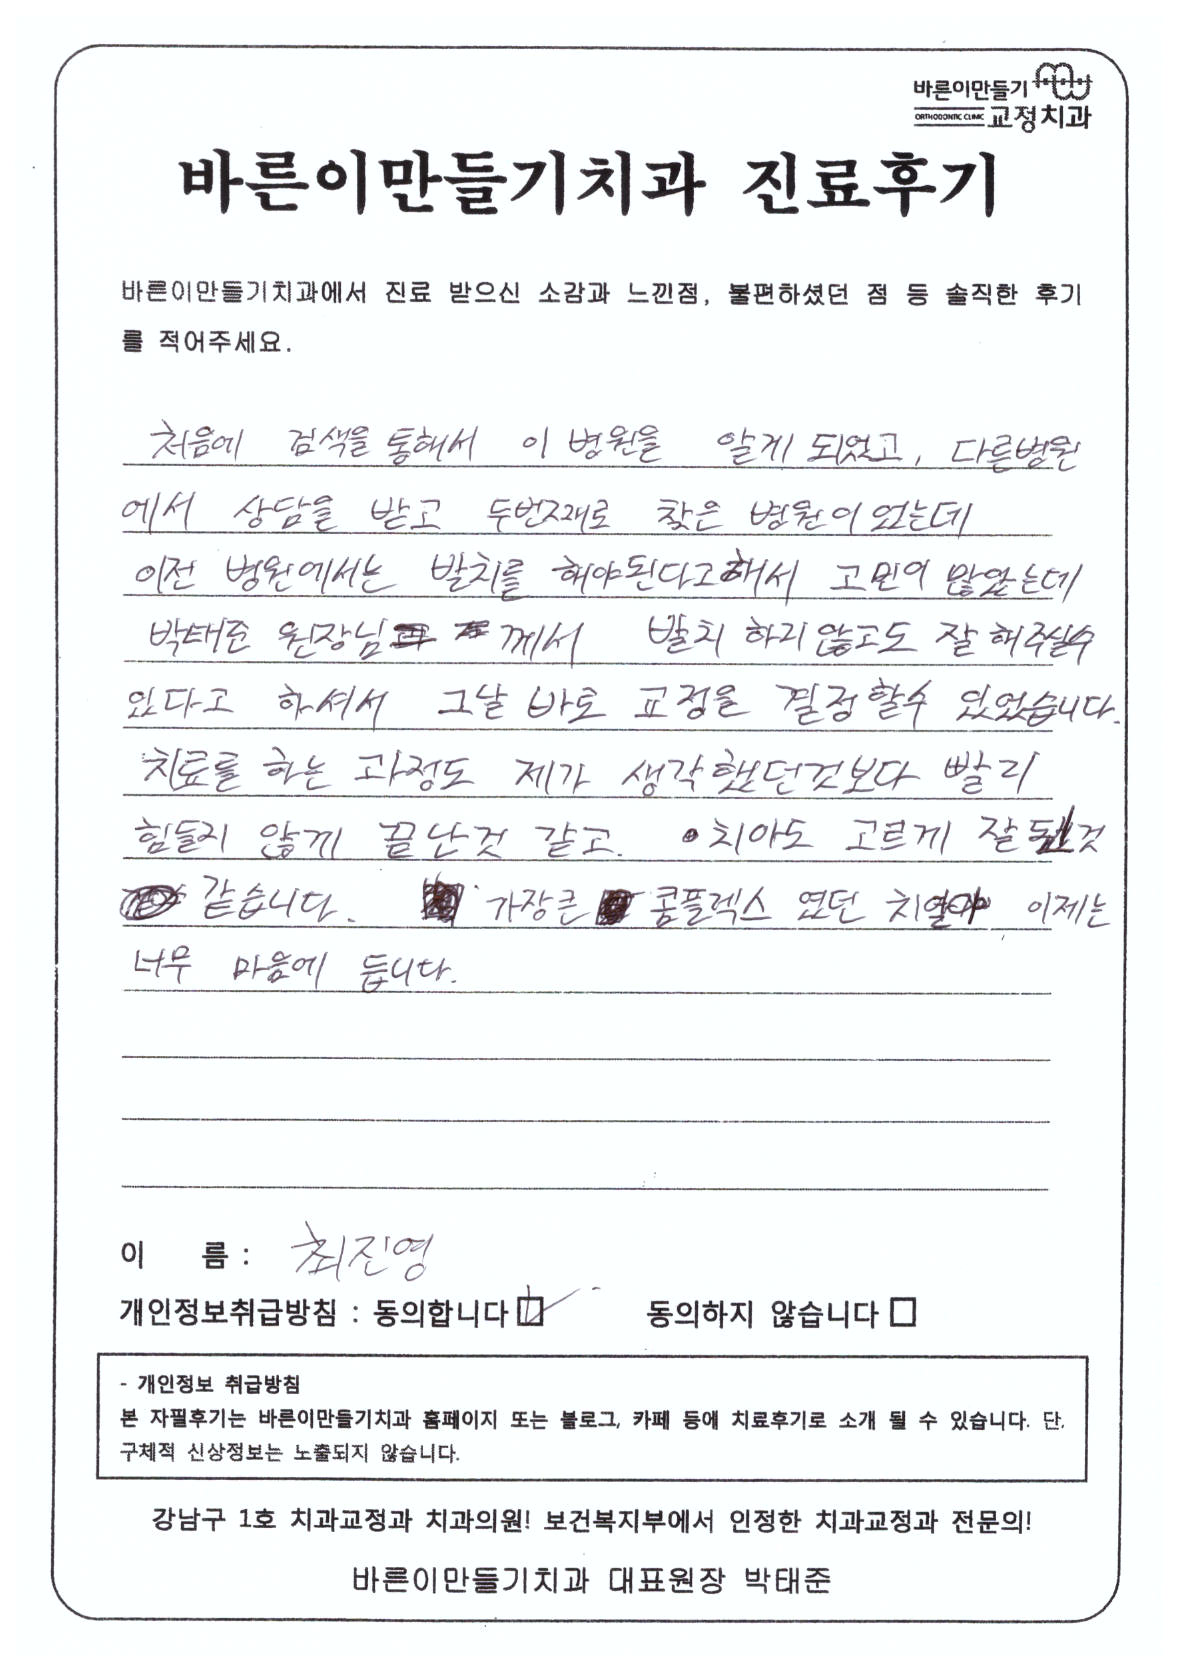 바른이만들기
ORTHODONTIC CLINIC 교정치과
바른이만들기치과 진료후기
바른이만들기치과에서 진료 받으신 소감과 느낀점, 불편하셨던 점 등 솔직한 후기
를 적어주세요.
처음에 검색을 통해서 이 병원을 알게 되었고, 다른병원
에서 상담을 받고 두번째로 찾은 병원이었는데
이전 병원에서는 발치를 해야된다고해서 고민이 많았는데
박태준 원장님 께서 발치 하지 않고도 잘 해주실수
있다고 하셔서 그날 바로 교정을 결정할수 있었습니다.
치료를 하는 과정도 제가 생각했던것보다 빨리
힘들지 않게 끝난것 같고. 치아도 고르게 잘 된것
같습니다. 가장큰 콤플렉스 였던 치열이 이제는
너무 마음에 듭니다.
이 름 : 최진영
개인정보취급방침 : 동의합니다 ☑ 동의하지 않습니다 □
- 개인정보 취급방침
본 자필후기는 바른이만들기치과 홈페이지 또는 블로그, 카페 등에 치료후기로 소개 될 수 있습니다. 단,
구체적 신상정보는 노출되지 않습니다.
강남구 1호 치과교정과 치과의원! 보건복지부에서 인정한 치과교정과 전문의!
바른이만들기치과 대표원장 박태준